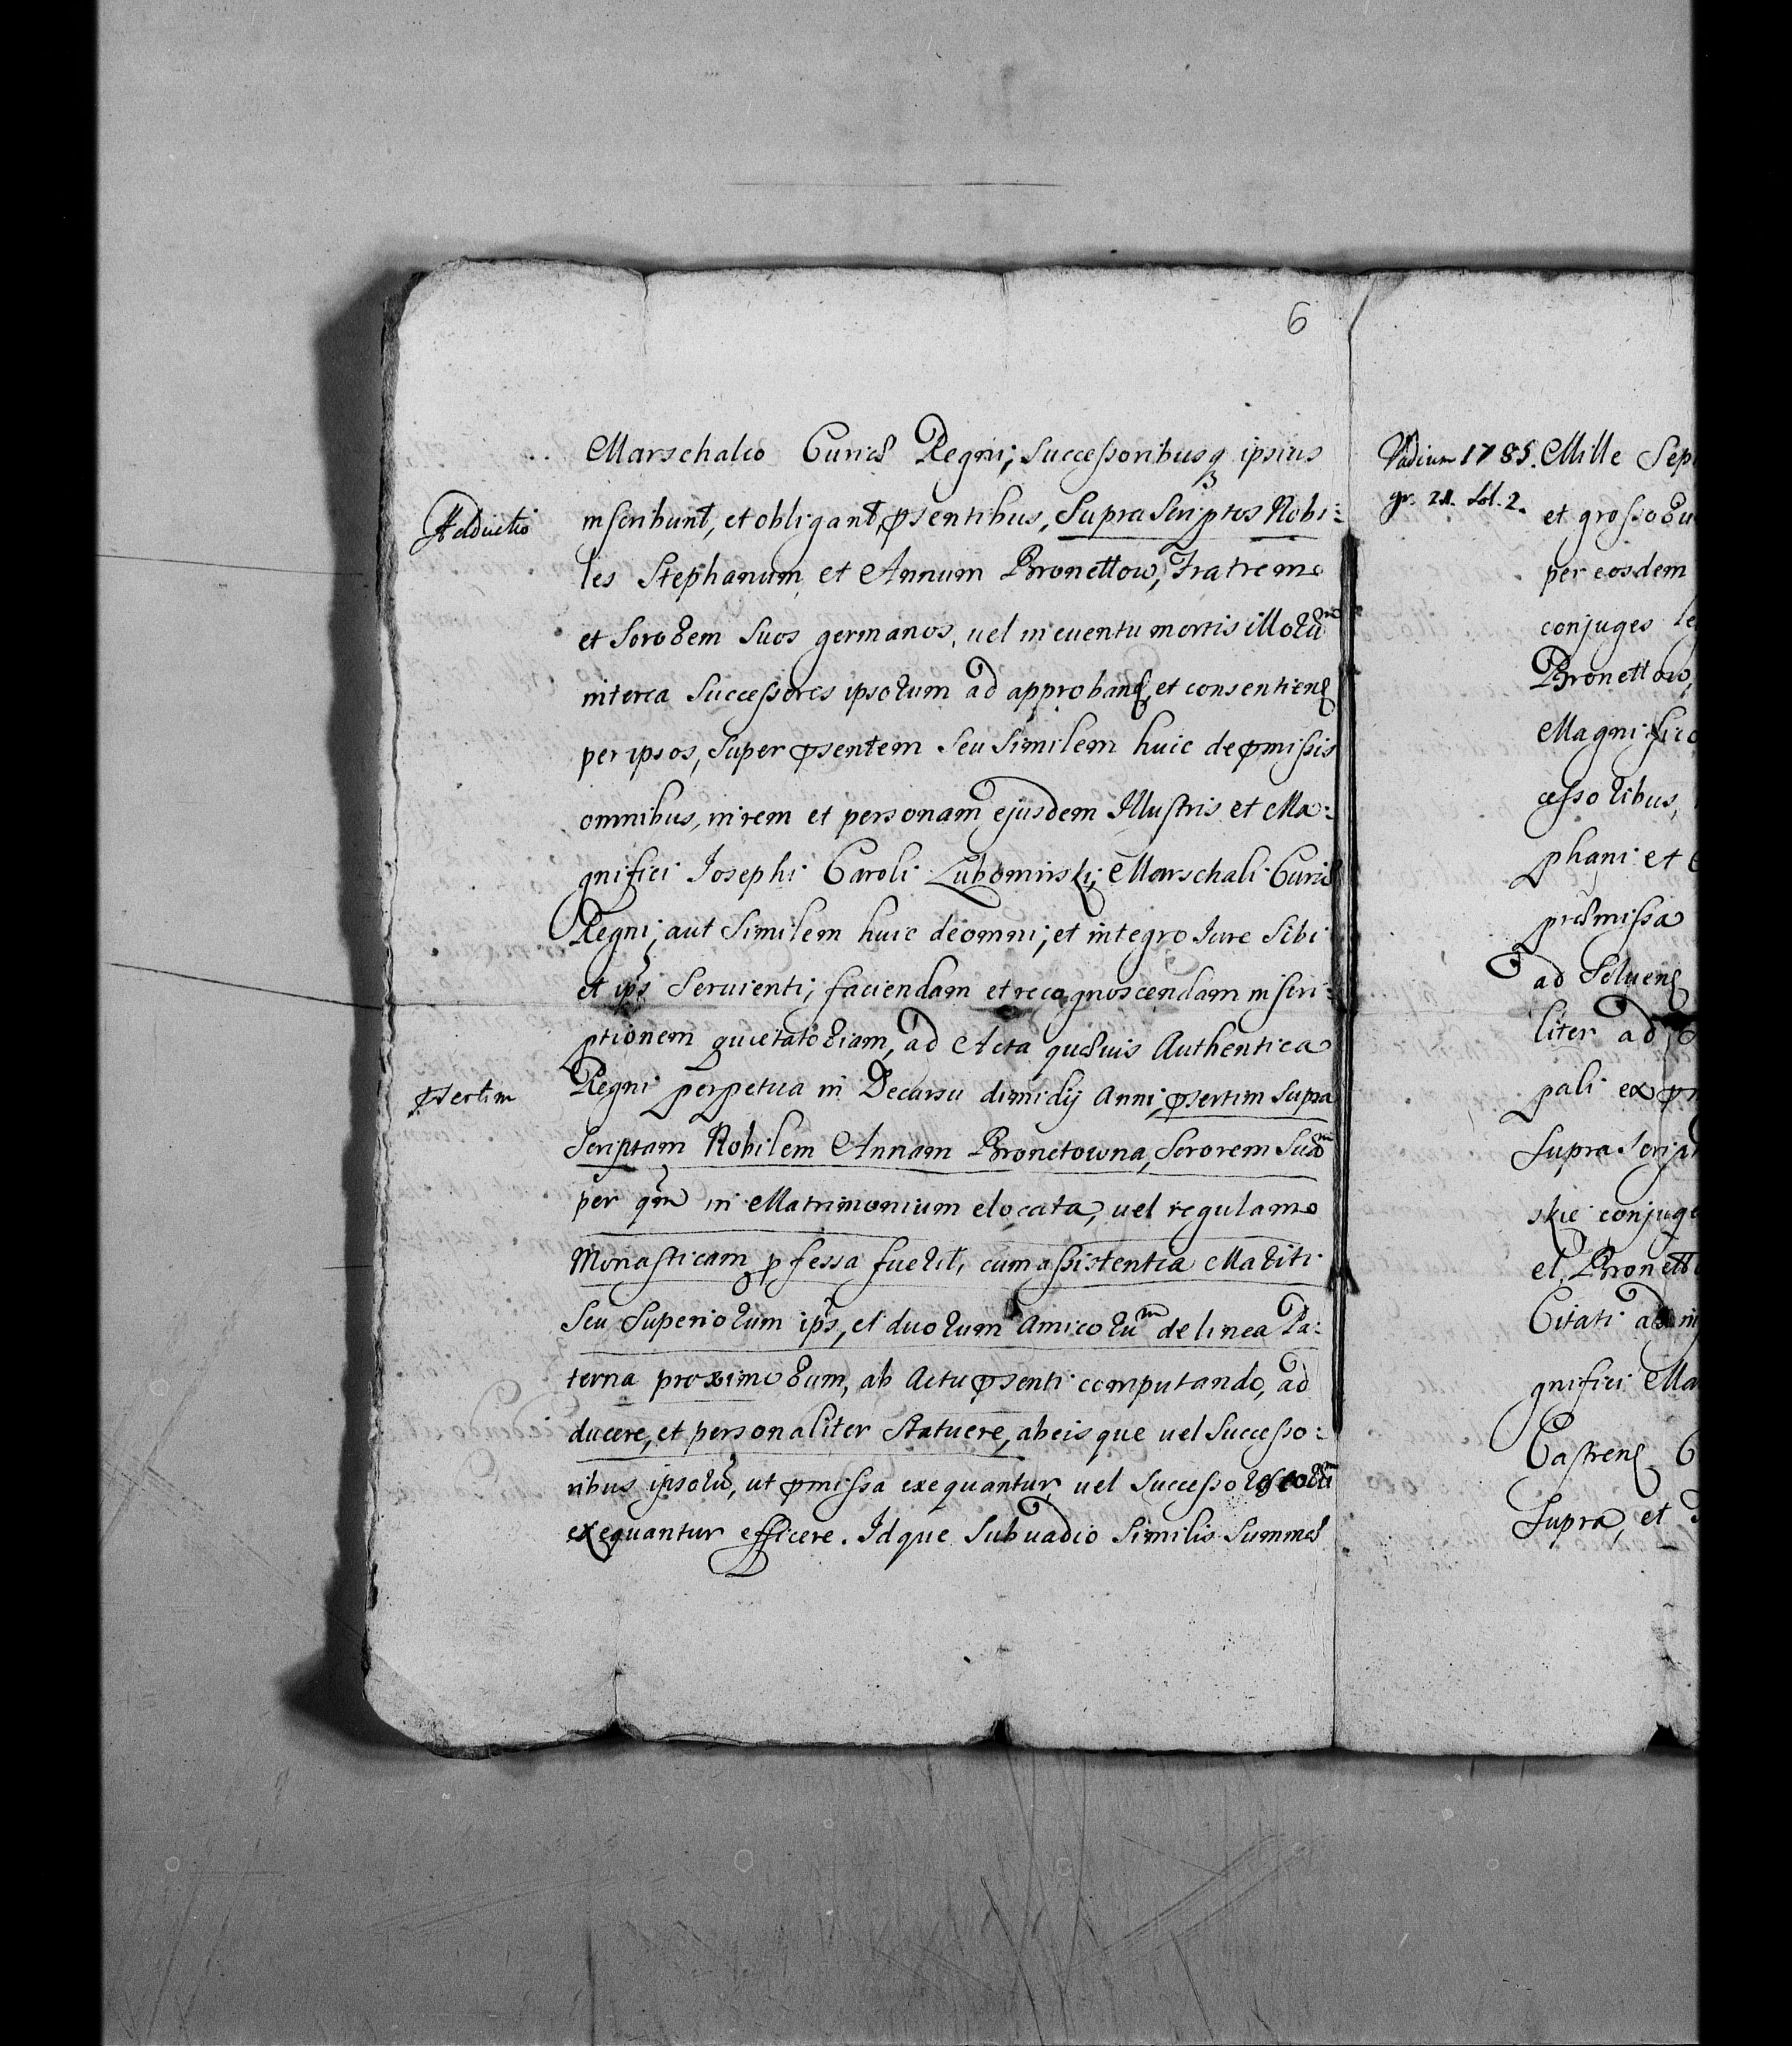 6
Marschalco Curiæ Regni, Successoribusq ipsius
Adductio
inscribunt, et obligant, psentibus, Supra Scriptos Nobi:
les Stephanum et Annam Bronettow, Fratrem
et Sororem Suos germanos, uel in euentu mortis illorum
interea Successores ipsorum ad approband, et consentiend
per ipsos, Super psentem Seu Similem huic de pmissis
omnibus, in rem et personam ejusdem Illustris et Ma:
gnifici Josephi Caroli Lubomirski, Marschali Curiæ
Regni, aut Similem huic de omni, et integro Jure Sibi
et ips Seruienti, faciendam et recognoscendam inscri:
ptionem quietatoriam, ad Acta quæuis Authentica
psertim
Regni perpetua in Decursu dimidij Anni, psertim Supra
Scriptam Nobilem Annam Bronetowna, Sororem Suam
per qm in Matrimonium elocata, uel regulam
Monasticam pfessa fuerit, cum assistentia Mariti
Seu Superiorum ips, et duorum Amicorum de linea Pa:
terna proximorum, ab Actu psenti computando, ad
ducere, et personaliter Statuere, abeisque uel Successo:
ribus ipsoru, ut pmissa exequantur, uel Successores eorum
exequantur efficere. Idque Sub uadio Similis Summæ
Vadium 1785.
gr. 21. Sol. 2.
Mille Sep
et grosso
per eosdem
conjuges
Bronettow,
Magnifico
cessoribus,
phani et
præmissa
ad Soluend
liter ad
pali ex
Supra Scrip
skie conjuge
el Bronett
Citati ad
gnifici Ma
Castrens
Supra, et